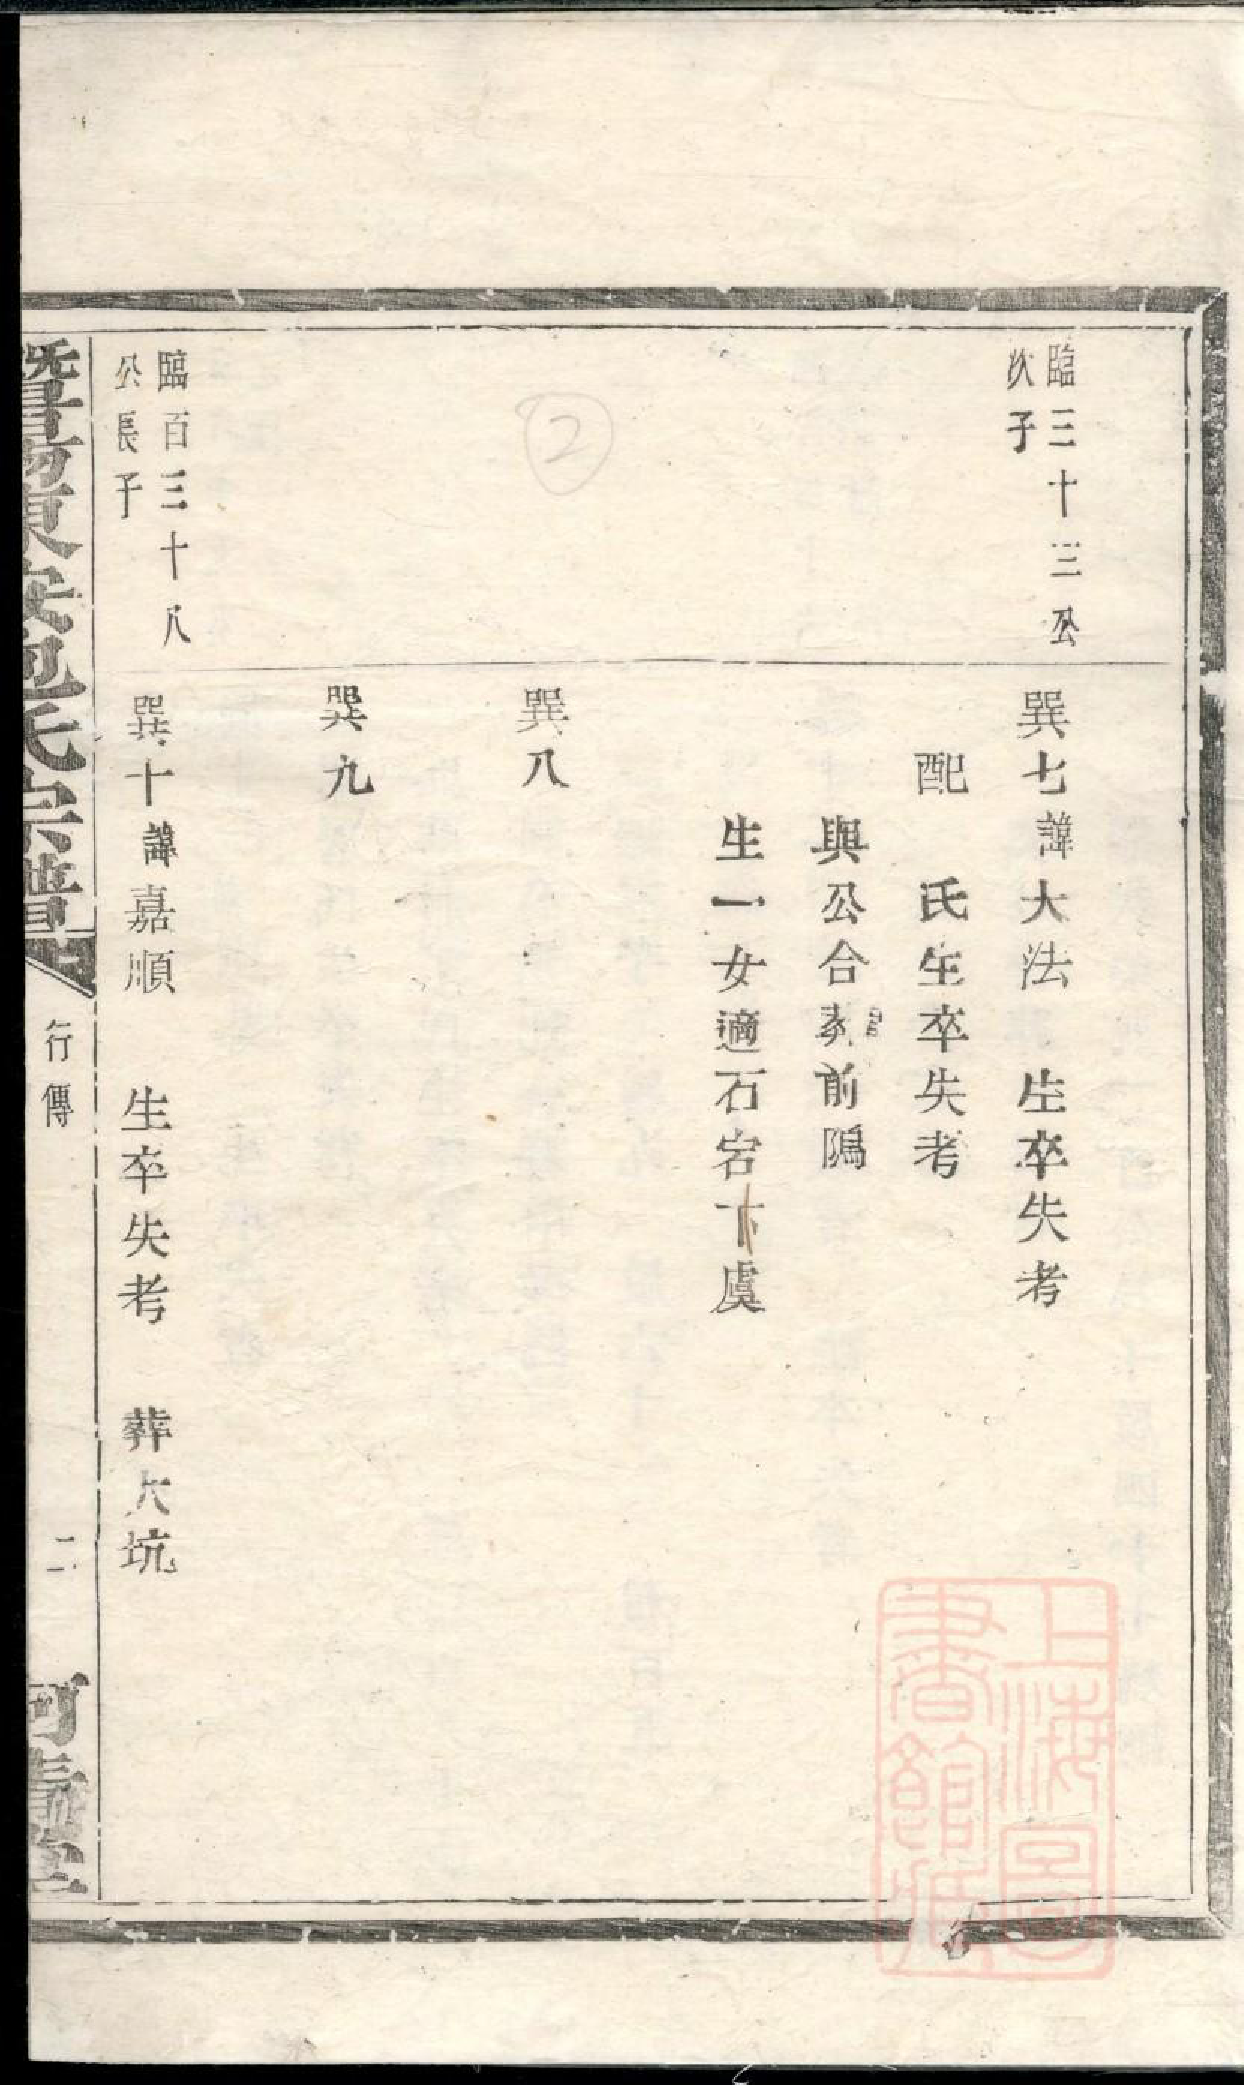 臨三十三公
次子
巽七諱大法　生卒失考
配　氏生卒失考
與公合葬前隝
生一女適石宕下虞
巽八
②
巽九
臨百三十八
公長子
巽十諱嘉順　生卒失考　葬大坑
暨陽東安包氏宗譜
行傳
二
上海圖
書館藏